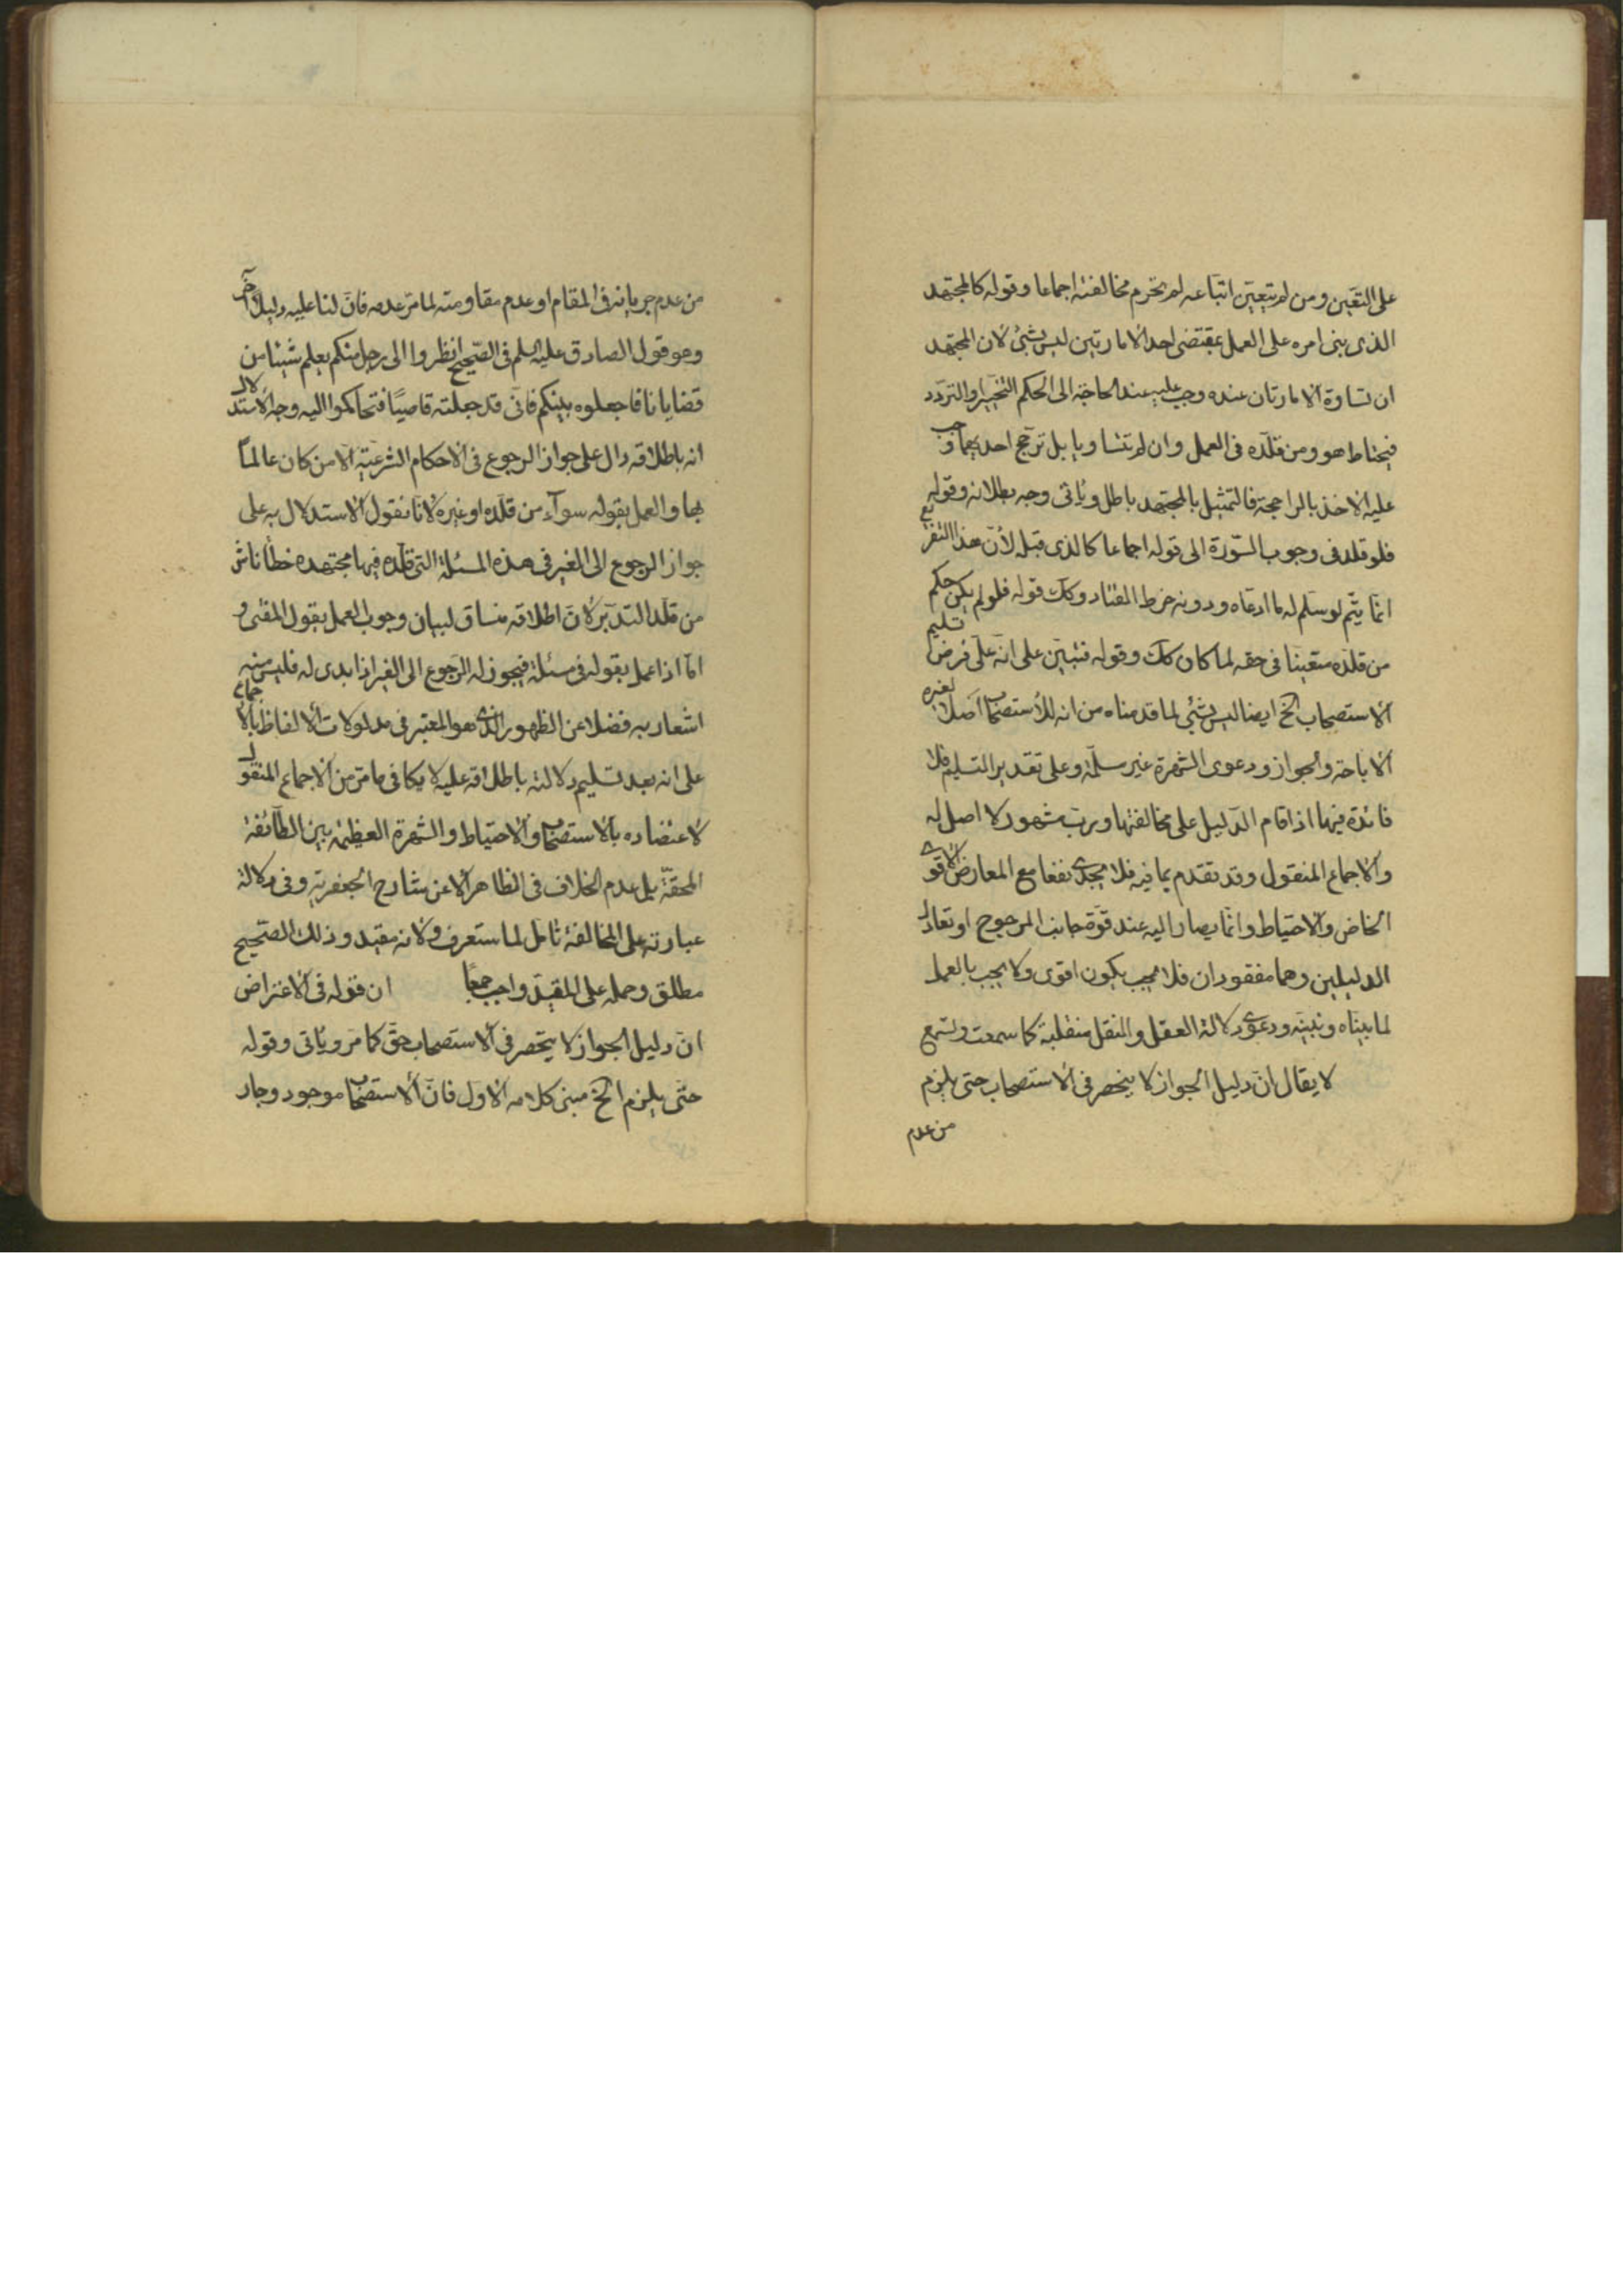 على التعّين ومن لم يتعيّن اتباعه لم يحرم مخالفته اجماعا وقوله كالمجتهد
الذى بنى امره على العمل بمقتضى احد الامارتين ليس بشئ لان المجتهد
ان تساوة الامارتان عنده وجب عليه عند الحاجة الى الحكم التخيير والتردد
فيحتاط هو ومن قلّده فى العمل وان لم تتساويا بل ترجح احديهما وجب
عليه الاخذ بالراجحة فالتمثيل بالمجتهد باطل وياتى وجه بطلانه وقوله
فلو قلد فى وجوب السّورة الى قوله اجماعا كالذى قبله لأن هذا التفريع
انمّا يتّم لو سلّم له ما ادعاه ودونه خرط القتاد وكك قوله فلو لم يكن حكم
من قلّده متعينا فى حقه لما كان كك وقوله فتبّين على انّه على فرض تسليم
الاستصحاب الخ ايضا ليس بشئ لما قدمناه من انه لا استصحاب اصلا لغيره
الاباحة والجواز ودعوى الشهرة غير مسلّمة وعلى تقدير التسليم فلا
فائدة فيها اذا قام الدّليل على مخالفتها وربّ مشهور لا اصل له
والاجماع المنقول وقد تقدم بما فيه فلا يجدى نفعا مع المعارض الاقوى
الخاص والاحتياط وانمّا يصار اليه عند قوّة جانب المرجوح او تعادل
الدليلين وهما مفقودان فلا يجب يكون اقوى ولا يجب بالعمل
لما بيناه ونبيّنه ودعوى دلالة العقل والنقل منقلبة كما سمعت وتسمع
لا يقال انّ دليل الجواز لا ينحصر فى الاستصحاب حتى يلزم
من عدم
من عدم جريانه فى المقام او عدم مقاومته لما مرّ عدمه فانّ لنا عليه دليلا آخر
وهو قول الصادق عليه السلم فى الصّحيح انظروا الى رجل منكم يعلم شيئا من
قضايانا فاجعلوه بينكم فانّى قد جعلته قاضيًا فتحاكموا اليه وجه الاستدلال
انه باطلاقه دال على جواز الرجوع فى الاحكام الشرعيّة الا من كان عالماً
بها والعمل بقوله سوآء من قلّده او غيره لانا نقول الاستدلال به على
جواز الرجوع الى الغير فى هذه المسئلة التى قلّده فيها مجتهده خطأ ناش
من قلّة التدبّر لانّ اطلاقه منساق لبيان وجوب العمل بقول المفتى و
امّا اذا عمل بقوله فى مسئلة فيجوز له الرّجوع الى الغير اذا بدى له فليس منه
اشعار به فضلا عن الظهور الذى هو المعتبر فى مدلولات الالفاظ بالاجماع
على انه بعد تسليم دلالته باطلاقه عليه لا يكافى ما مرّ من الاجماع المنقول
لاعتضاده بالاستصحاب والاحتياط والشهرة العظيمة بين الطائفة
المحقّة بل عدم الخلاف فى الظاهر الا عن شارح الجعفرية وفى دلالة
عبارته على المخالفة تامل لما ستعرف ولانه مقيد وذلك الصّحيح
مطلق وحمله على المقيّد واجب جمعًا ان قوله فى الاعتراض
انّ دليل الجواز لا ينحصر فى الاستصحاب حقّ كما مرّ وياتى وقوله
حتّى يلزم الخ مبنى كلامه الاوّل فانّ الاستصحاب موجود وجار